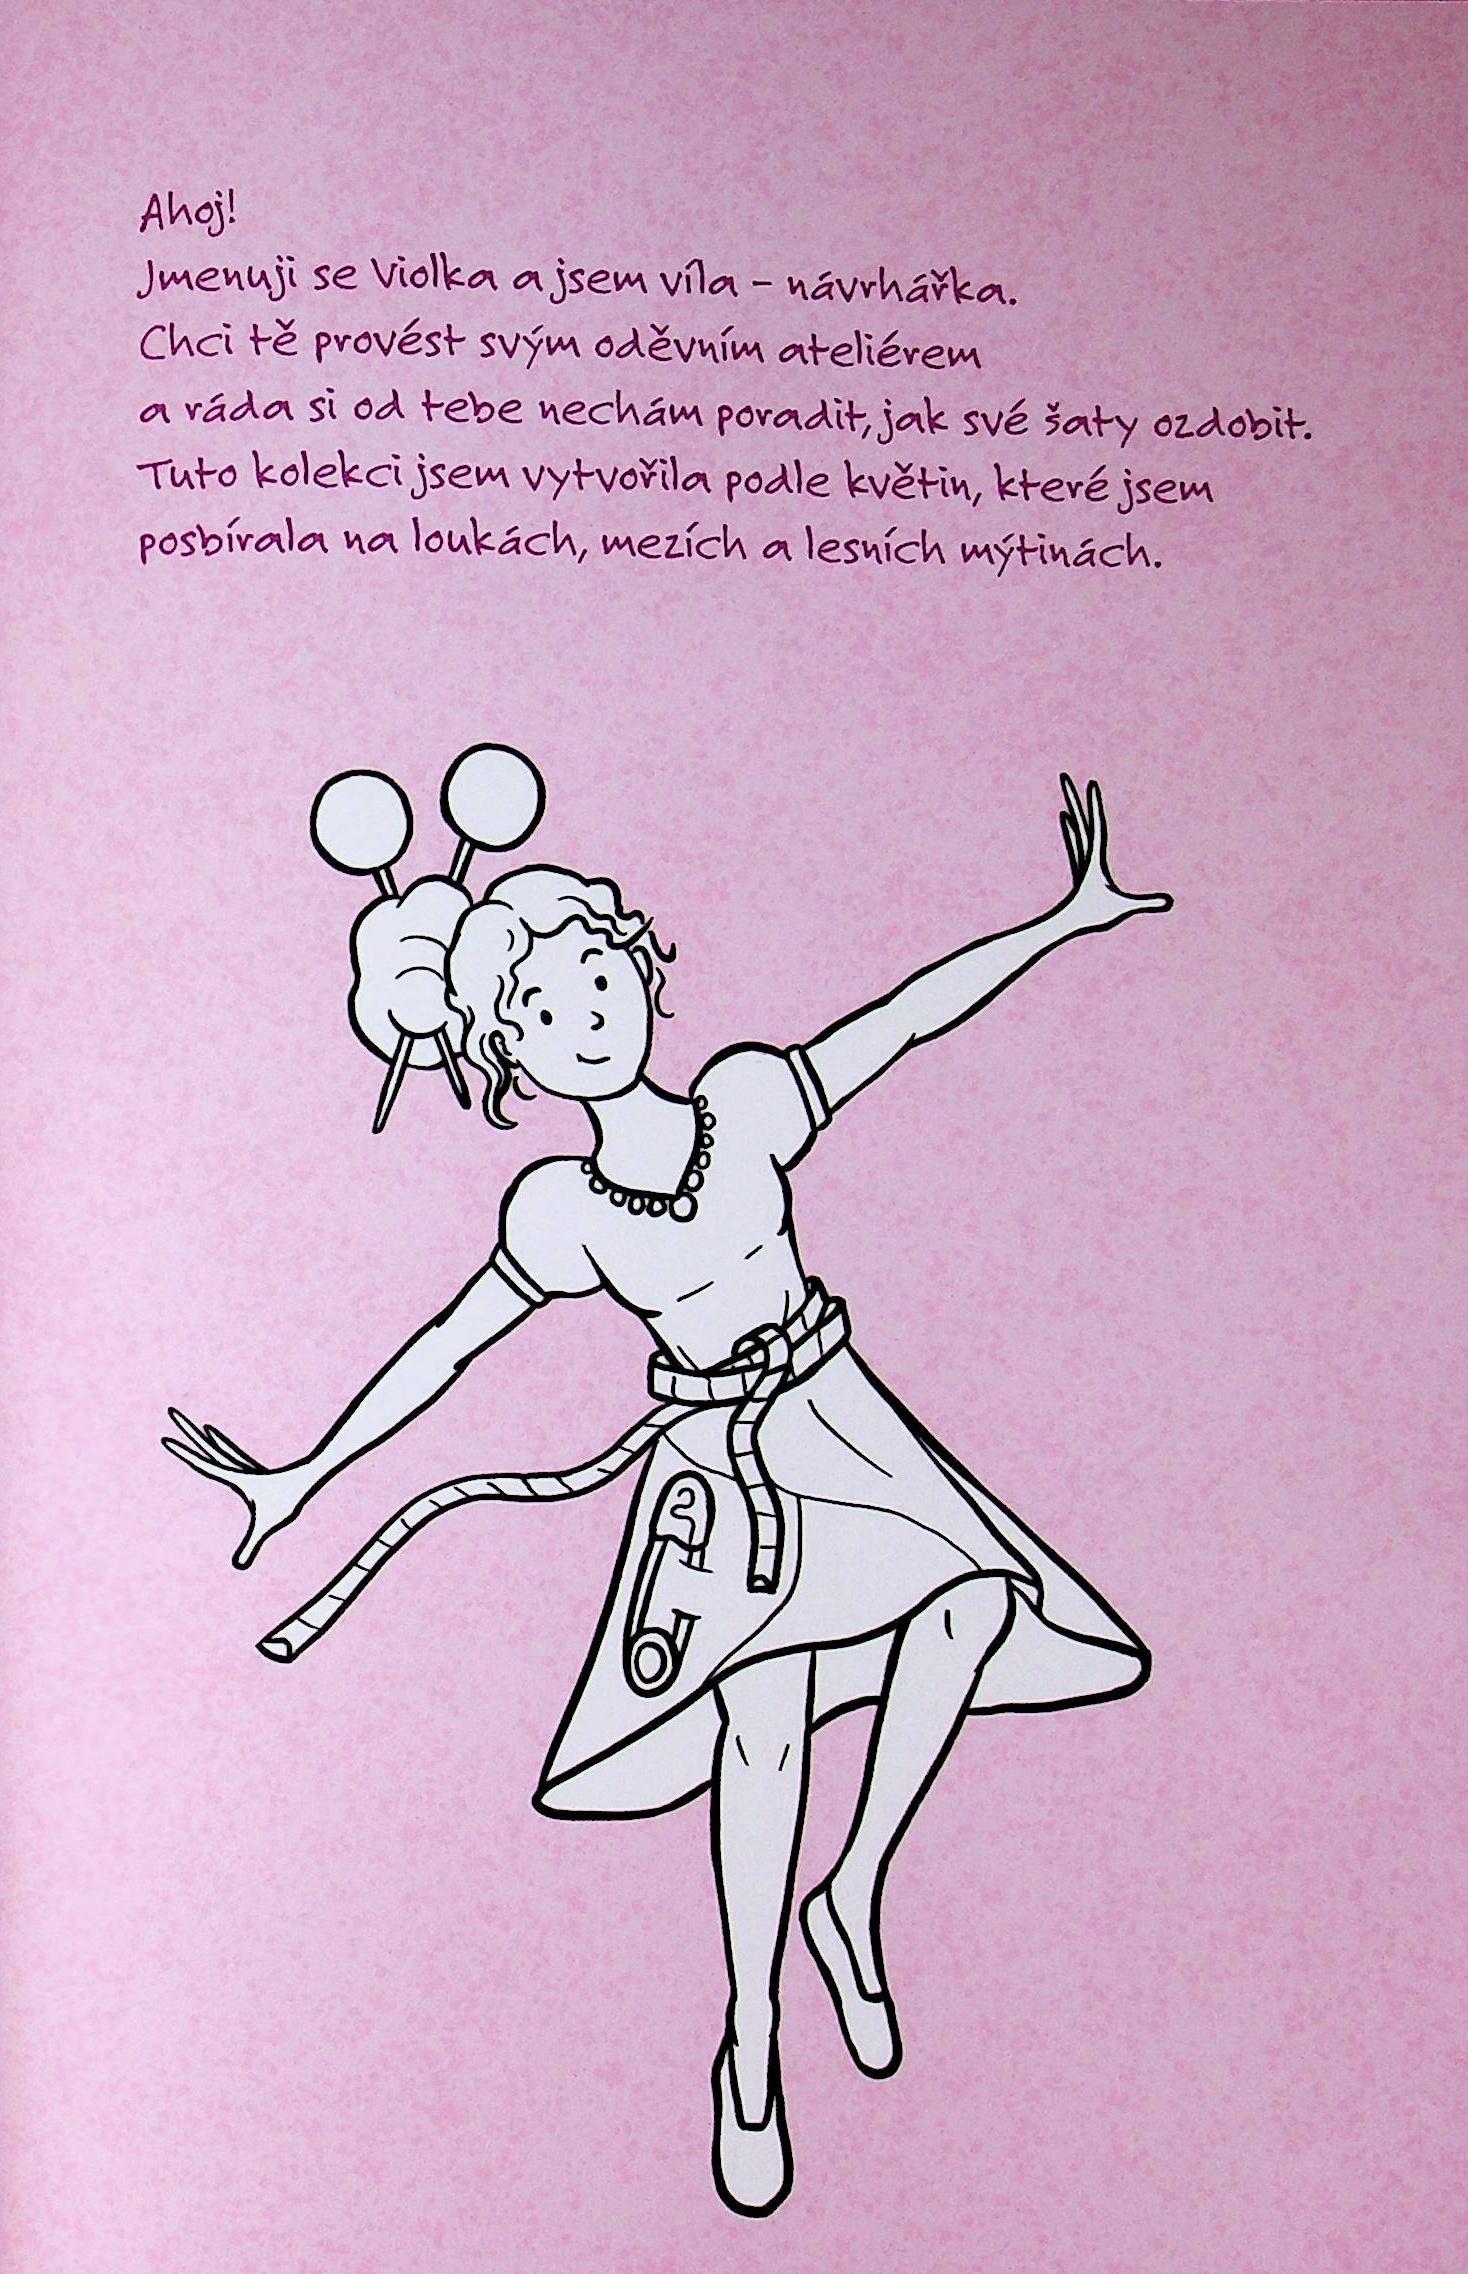 Ahoj!
Jmenuji se Violka a jsem víla – návrhářka.
Chci tě provést svým oděvním ateliérem
a ráda si od tebe nechám poradit, jak své šaty ozdobit.
Tuto kolekci jsem vytvořila podle květin, které jsem
posbírala na loukách, mezích a lesních mýtinách.